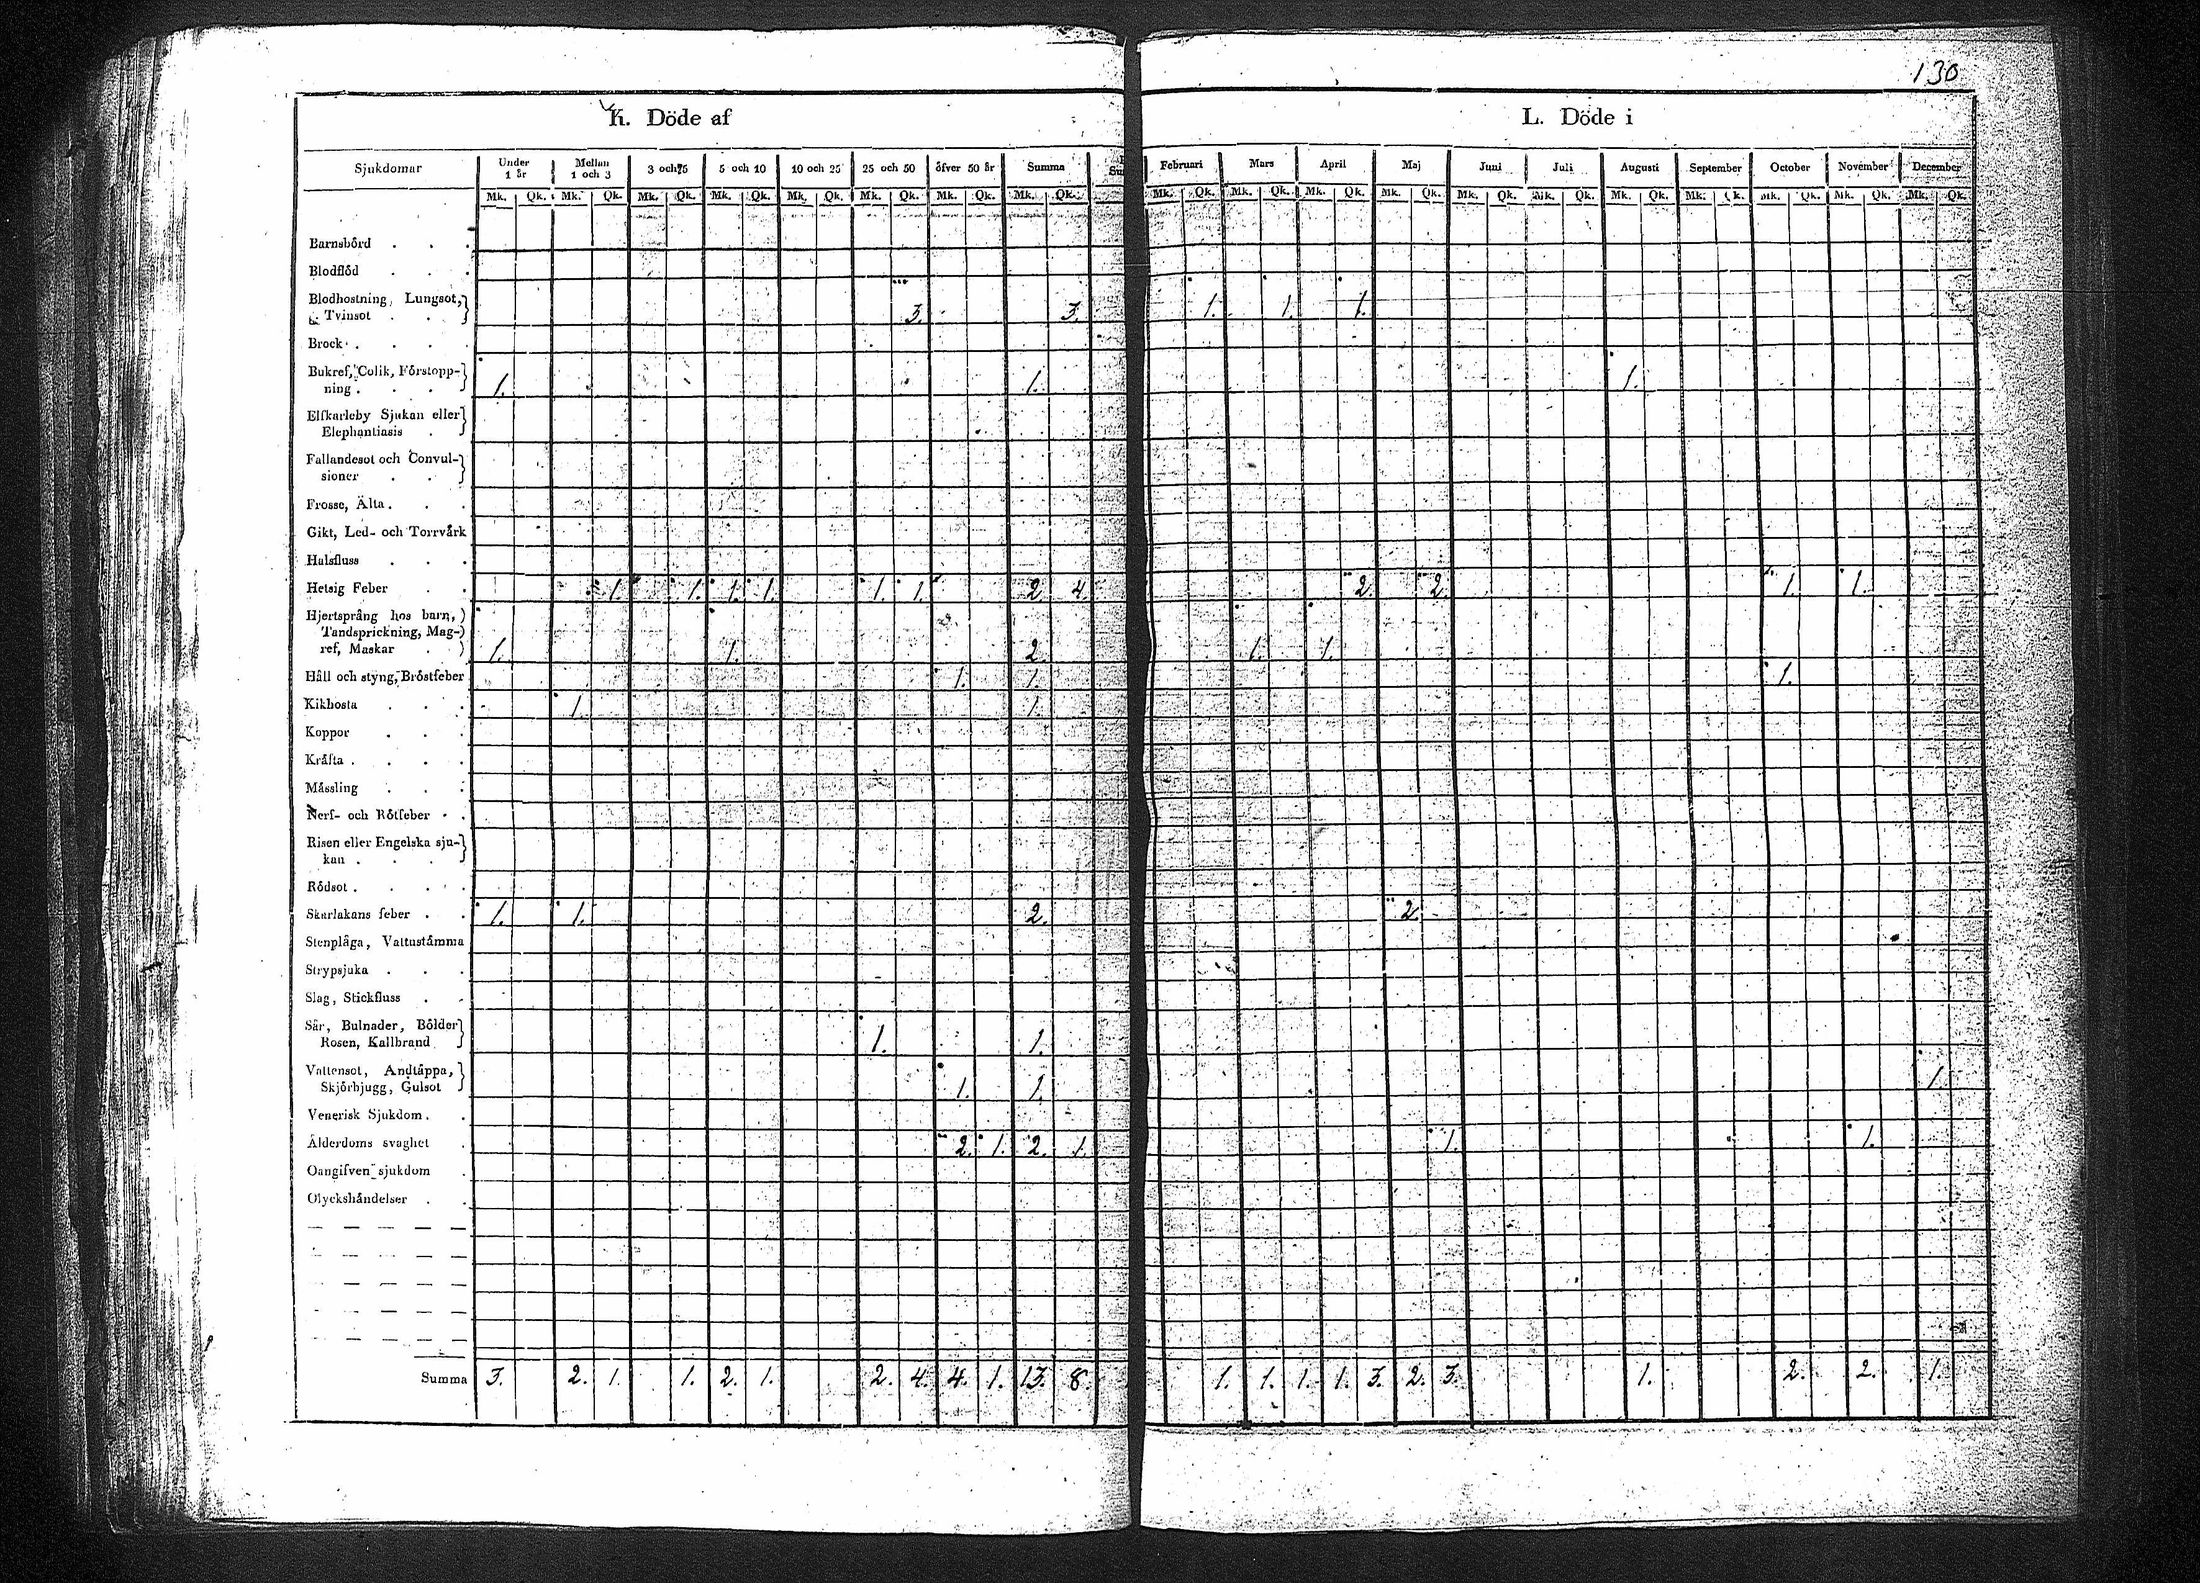 130
K. Döde af
L. Döde i
Sjukdomar Under 1 år Mellan 1 och 3 3 och 5 5 och 10 10 och 25 25 och 50 öfver 50 år Summa Februari Mars April Maj Juni Juli Augusti September October November December
Mk. Qk. Mk. Qk. Mk. Qk. Mk. Qk. Mk. Qk. Mk. Qk. Mk. Qk. Mk. Qk. Mk. Qk. Mk. Qk. Mk. Qk. Mk. Qk. Mk. Qk. Mk. Qk. Mk. Qk. Mk. Qk. Mk. Qk. Mk. Qk. Mk. Qk.
Barnsbörd
Blodflöd
Blodhostning, Lungsot,
Tvinsot 3. 3. 1. 1. 1.
Brock
Bukref, Colik, Förstopp-
ning 1. 1. 1.
Elfkarleby Sjukan eller
Elephantiasis
Fallandesot och Convul-
sioner
Frosse, Älta
Gikt, Led- och Torrvärk
Halsfluss
Hetsig Feber 1. 1. 1. 1. 1. 1. 2 4 2 2. 1. 1.
Hjertsprång hos barn,
Tandsprickning, Mag-
ref, Maskar 1. 1. 2. 1. 1.
Håll och styng, Bröstfeber 1. 1. 1.
Kikhosta 1. 1.
Koppor
Kräfta
Mässling
Nerf- och Rötfeber
Risen eller Engelska sju-
kan
Rödsot
Skarlakans feber 1. 1. 2. 2.
Stenplåga, Vattustämma
Strypsjuka
Slag, Stickfluss
Sår, Bulnader, Bölder
Rosen, Kallbrand 1. 1.
Vattensot, Andtäppa,
Skjörbjugg, Gulsot 1. 1. 1.
Venerisk Sjukdom
Ålderdoms svaghet 2. 1. 2. 1. 1. 1.
Oangifven sjukdom
Olyckshändelser
Summa 3. 2. 1. 1. 2. 1. 2. 4. 4. 1. 13. 8. 1. 1. 1. 1. 3. 2. 3. 1. 2. 2. 1.